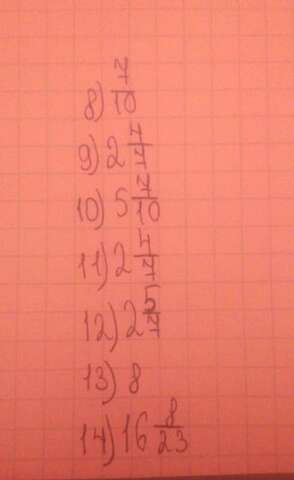 8) 7/10
9) 2 4/7
10) 5 7/10
11) 2 4/7
12) 2 5/7
13) 8
14) 16 8/23